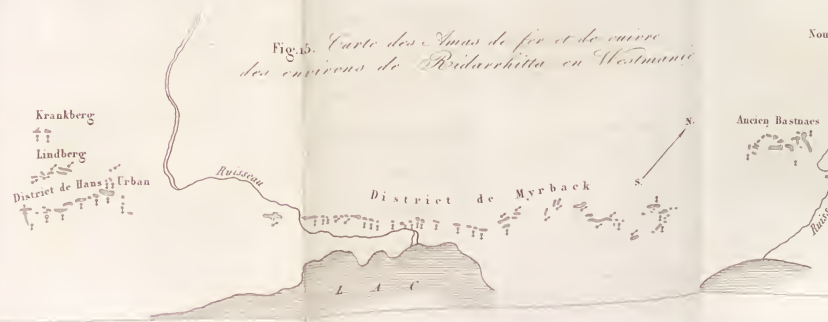 Fig. 15. Carte des Amas de fer et de cuivre
des environs de Ridarrhitta en Westmanie
Nou
Krankberg
Lindberg
District de Hans Urban
Ruisseau
District de Myrback
N.
S.
Ancien Bastnaes
LAC
Ruis